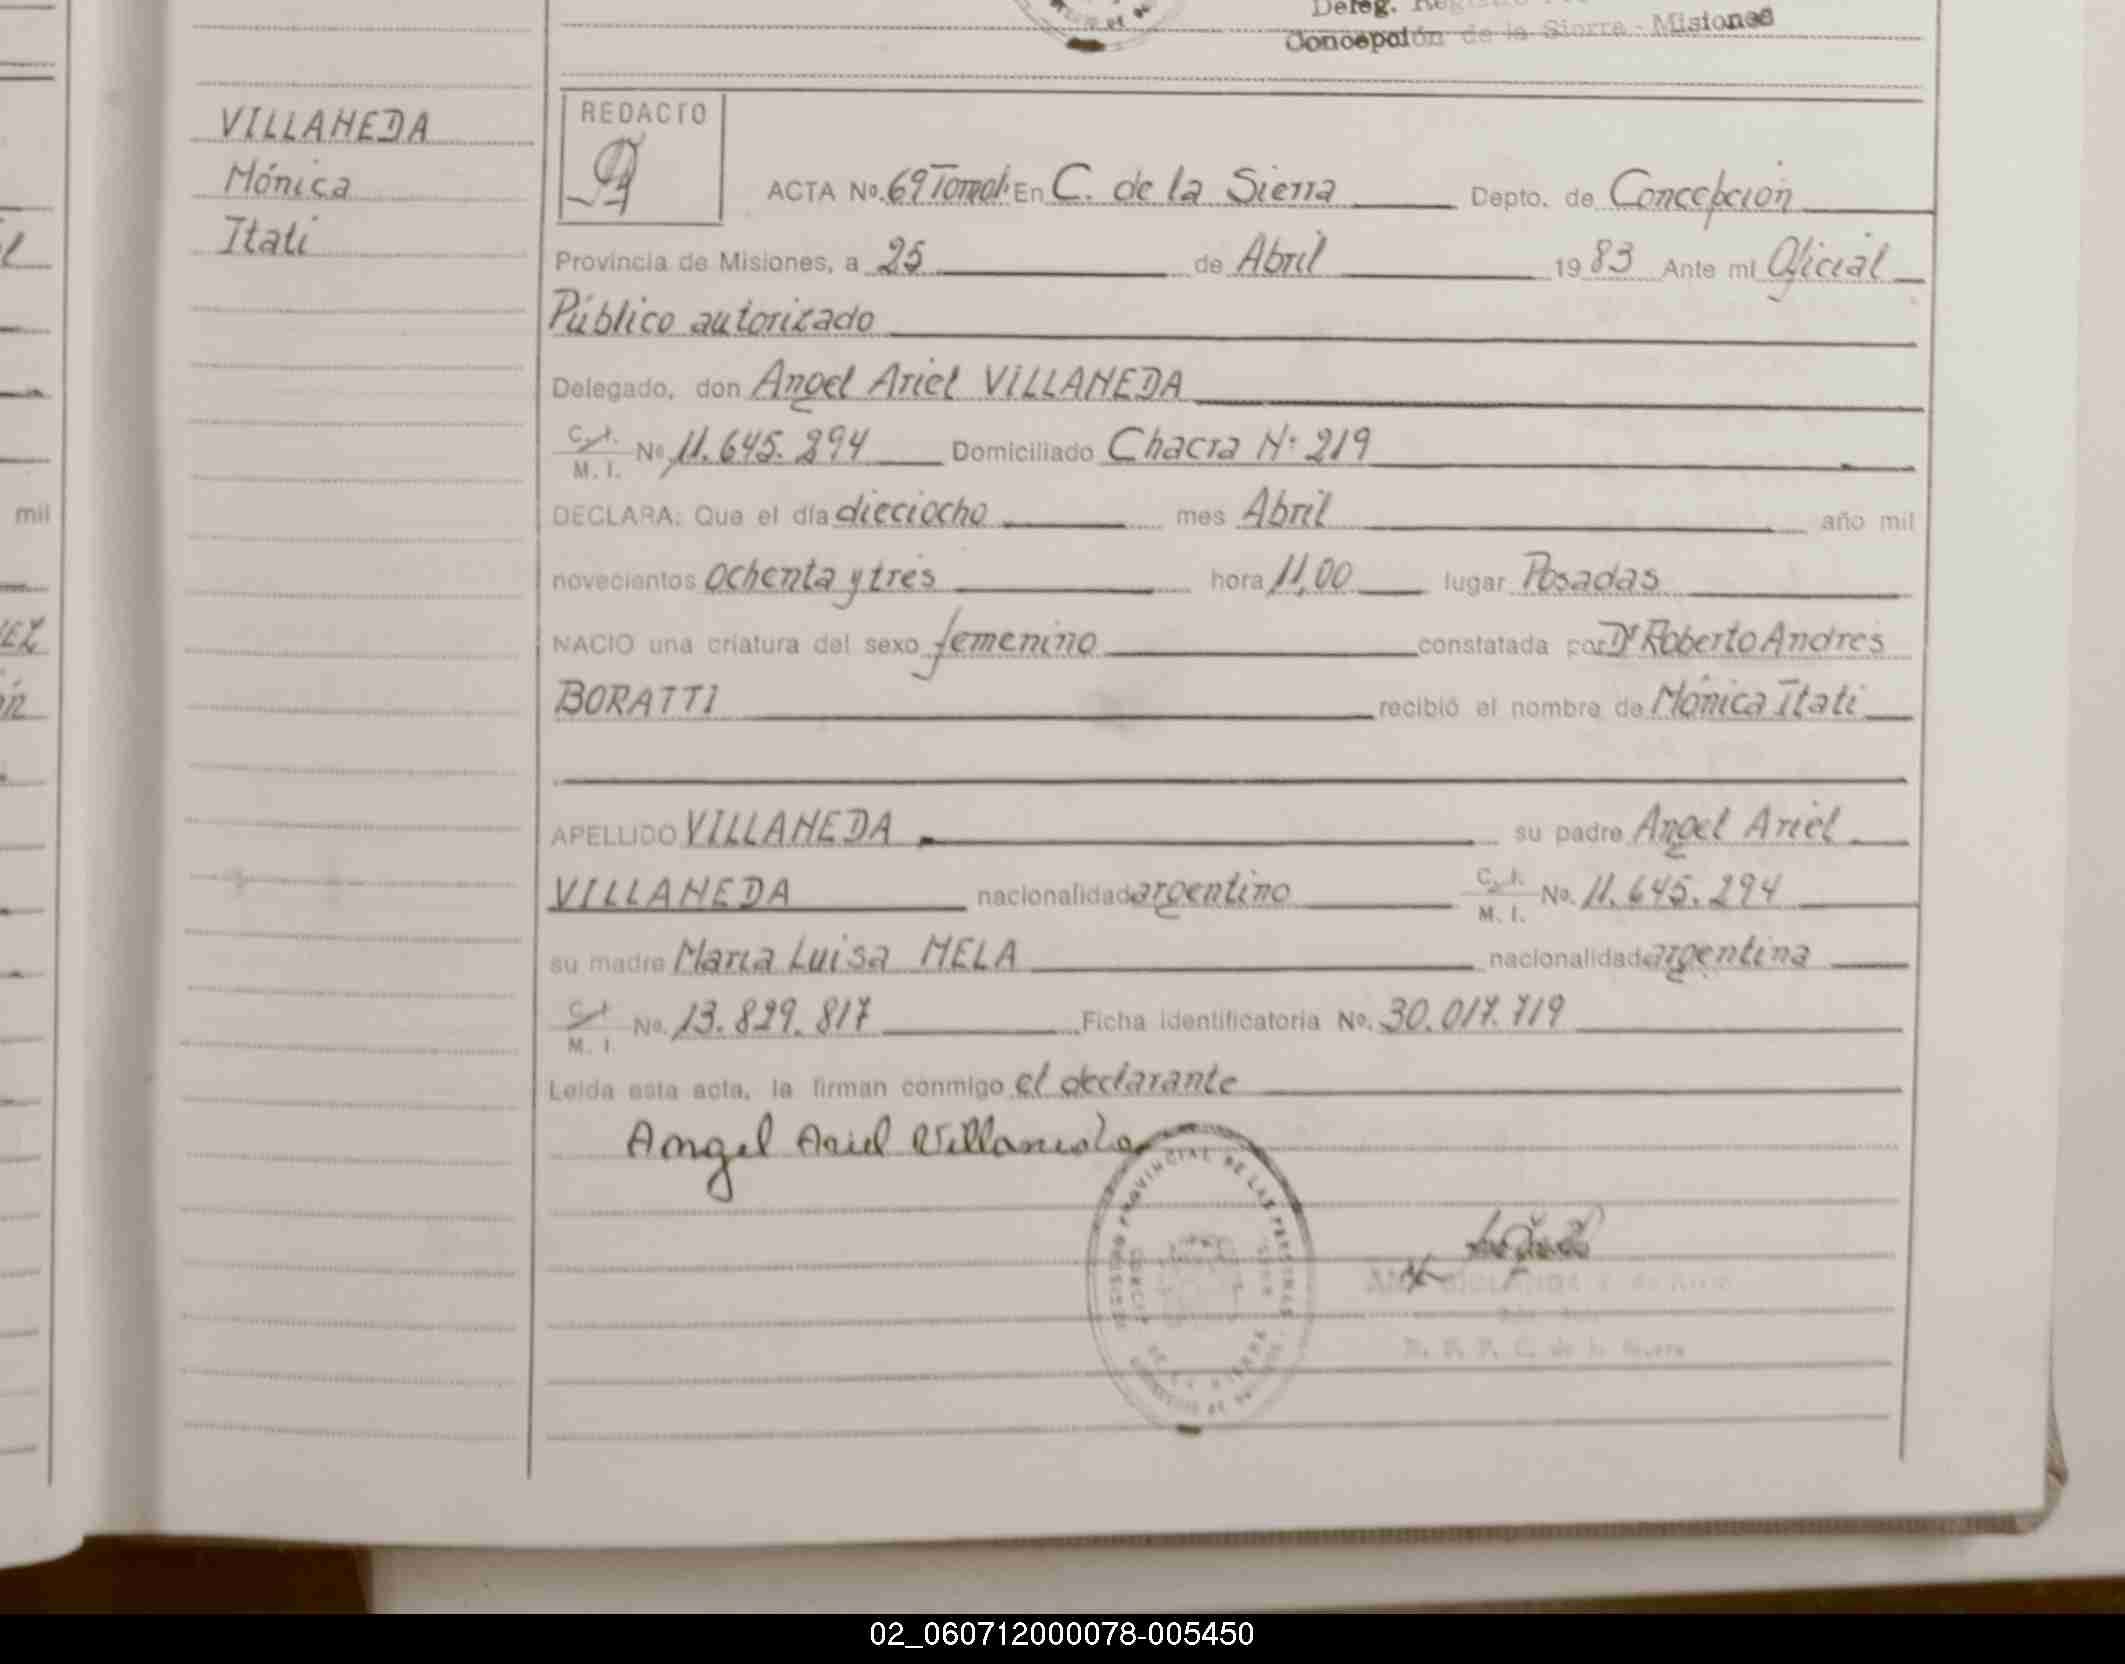 Deleg.
Concepción de la Sierra - Misiones
VILLAHEDA
Mónica
Itatí
REDACTO
ACTA No. 69 Tomo I: En C. de la Sierra Depto. de Concepción
Provincia de Misiones, a 25 de Abril 1983 Ante mí Oficial
Público autorizado
Delegado, don Angel Ariel VILLAHEDA
C. I.
M. I. No. 11.645.294 Domiciliado Chacra N: 219
DECLARA: Que el día dieciocho mes Abril año mil
novecientos ochenta y tres hora 11,00 lugar Posadas
NACIO una criatura del sexo femenino constatada por Dr Roberto Andres
BORATTI recibió el nombre de Mónica Itatí
APELLIDO VILLAHEDA su padre Angel Ariel
VILLAHEDA nacionalidad argentino C. I. M. I. No. 11.645.294
su madre María Luisa MELA nacionalidad argentina
C. I.
M. I. No. 13.829.817 Ficha identificatoria No. 30.017.719
Leída esta acta, la firman conmigo el declarante
Angel Ariel Villaneda
PROVINCIAL DE LAS PERSONAS
mil
02_060712000078-005450